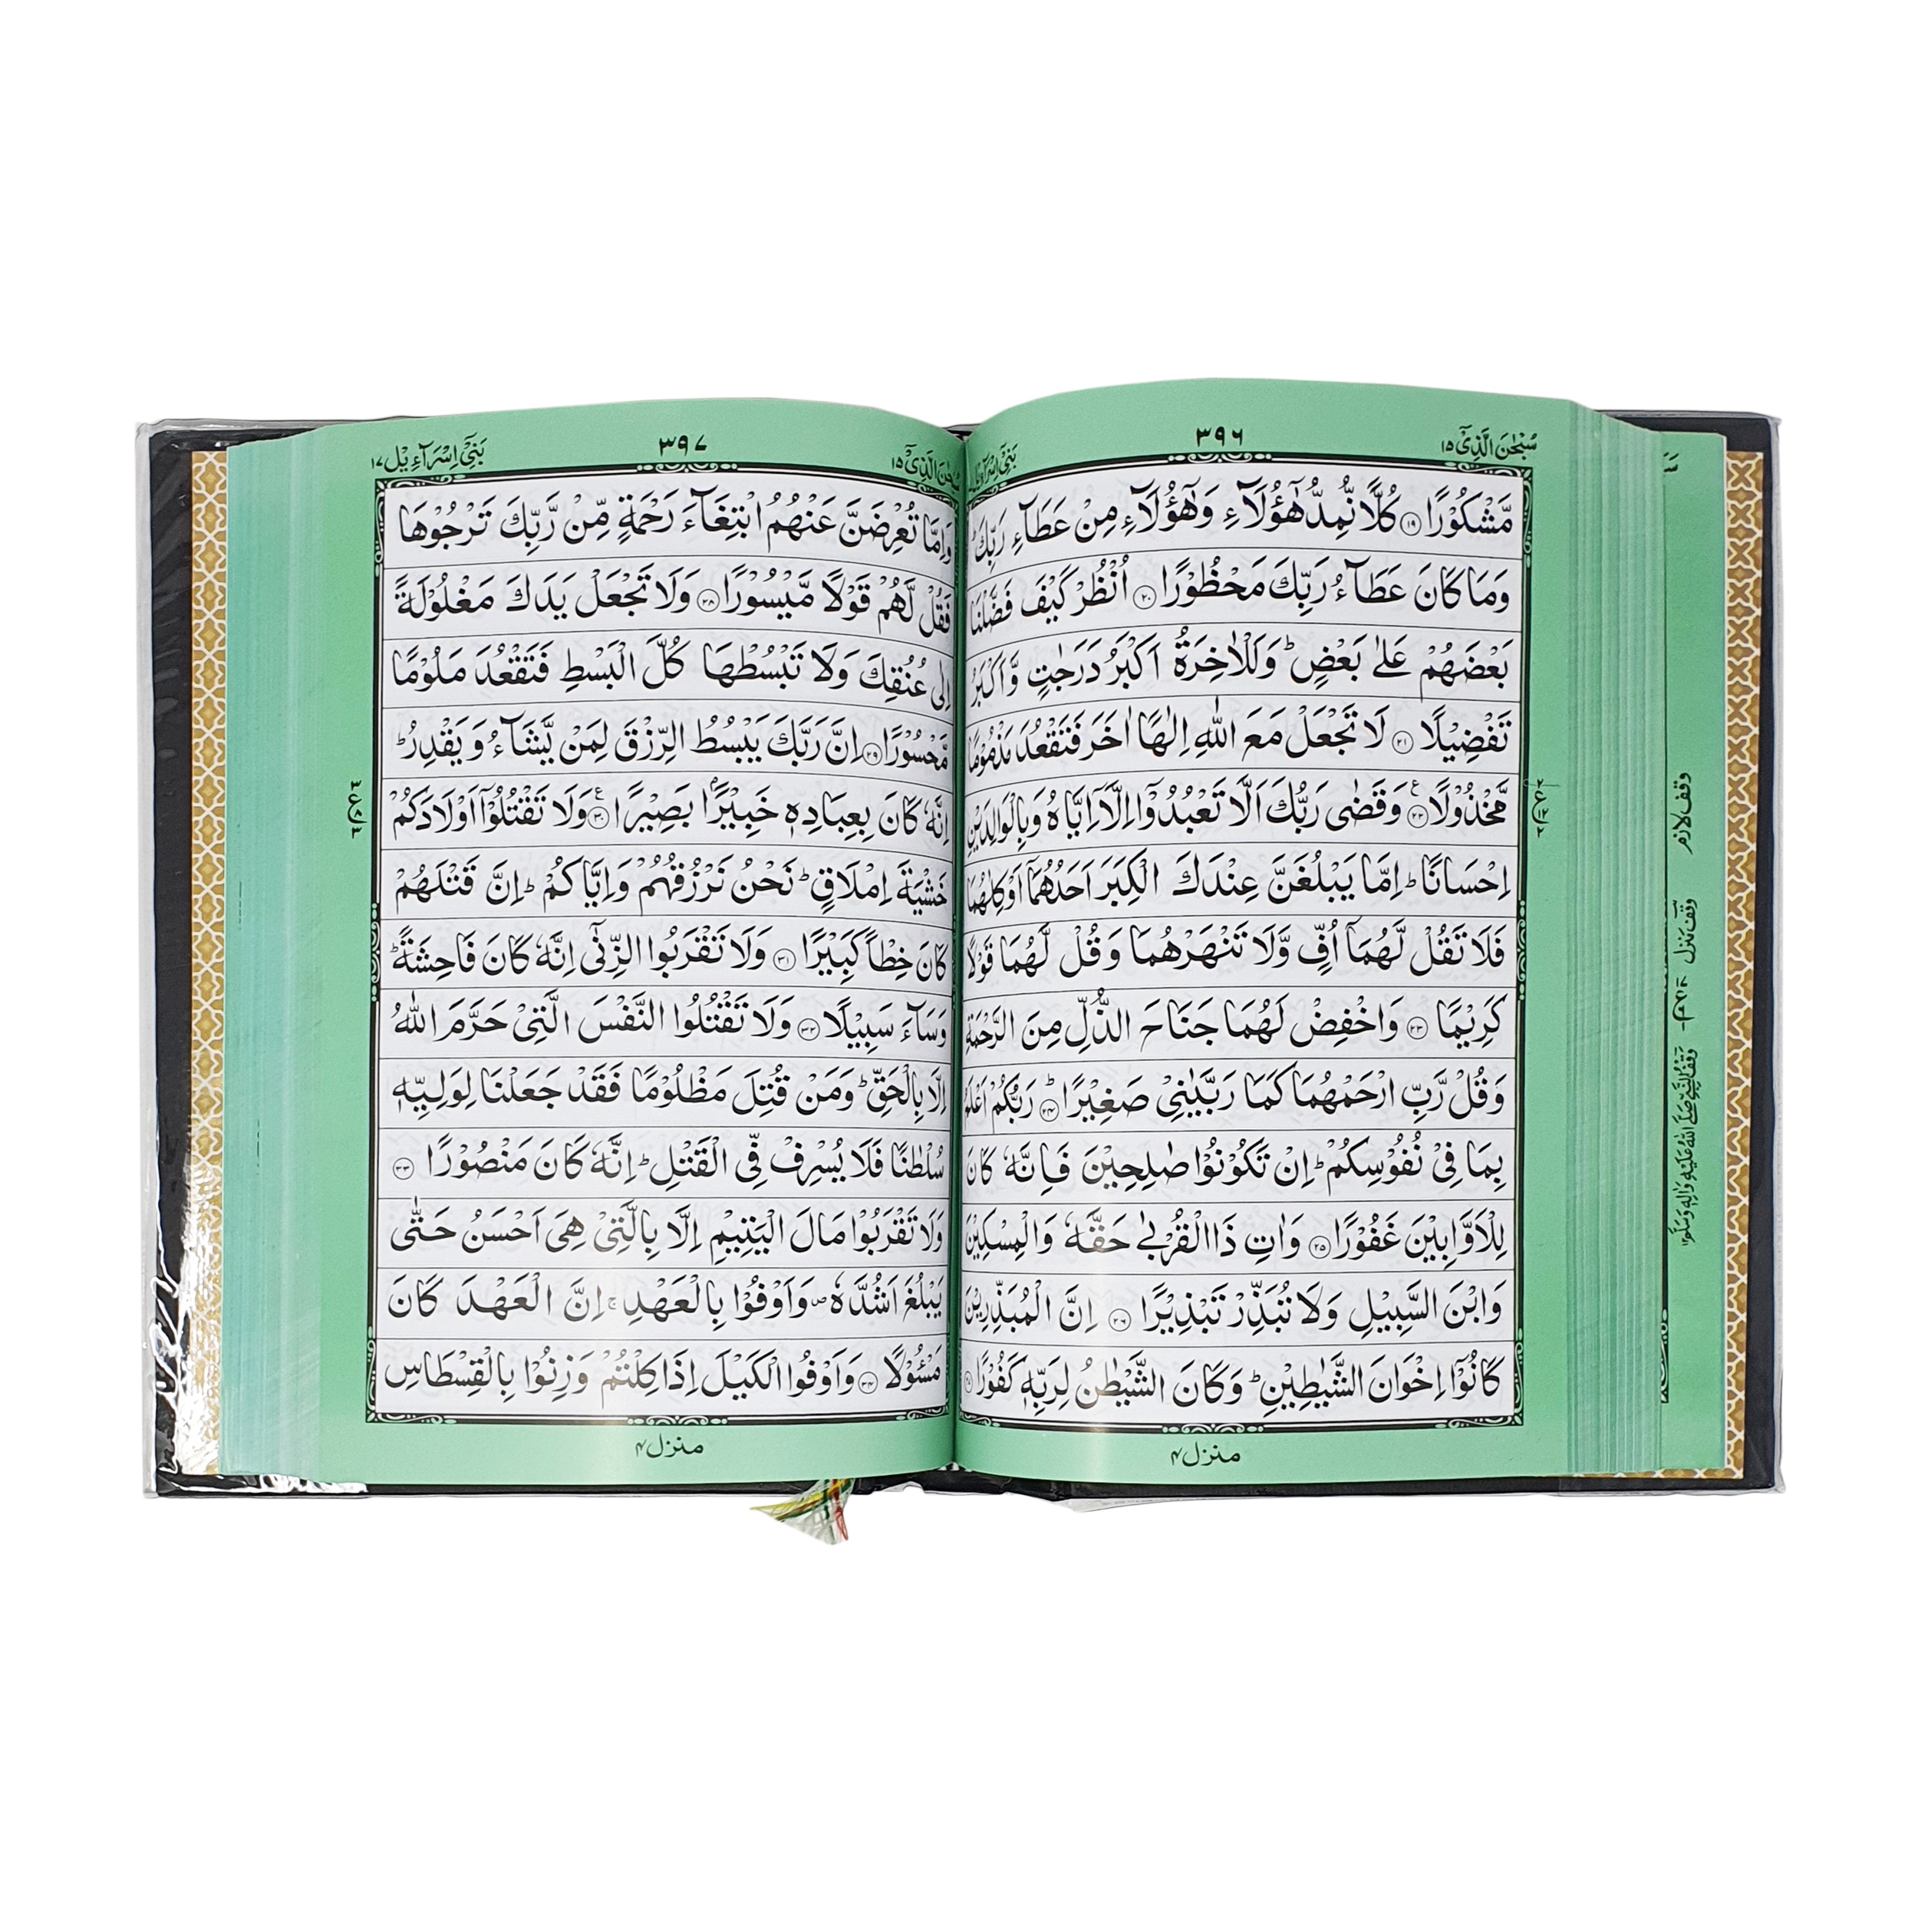 سُبْحٰنَ الَّذِیْۤ ١٥
٣٩٦
بَنِیْۤ اِسْرَآءِیْل
مَّشْكُوْرًا ﴿١٩﴾ كُلًّا نُّمِدُّ هٰۤؤُلَآءِ وَهٰۤؤُلَآءِ مِنْ عَطَآءِ رَبِّكَ ؕ
وَمَا كَانَ عَطَآءُ رَبِّكَ مَحْظُوْرًا ﴿٢٠﴾ اُنْظُرْ كَیْفَ فَضَّلْنَا
بَعْضَهُمْ عَلٰی بَعْضٍ ؕ وَلَلْاٰخِرَةُ اَكْبَرُ دَرَجٰتٍ وَّاَكْبَرُ
تَفْضِیْلًا ﴿٢١﴾ لَا تَجْعَلْ مَعَ اللّٰهِ اِلٰهًا اٰخَرَ فَتَقْعُدَ مَذْمُوْمًا
مَّخْذُوْلًا ﴿٢٢﴾ وَقَضٰی رَبُّكَ اَلَّا تَعْبُدُوْۤا اِلَّاۤ اِیَّاهُ وَبِالْوَالِدَیْنِ
اِحْسَانًا ؕ اِمَّا یَبْلُغَنَّ عِنْدَكَ الْكِبَرَ اَحَدُهُمَاۤ اَوْ كِلٰهُمَا
فَلَا تَقُلْ لَّهُمَاۤ اُفٍّ وَّلَا تَنْهَرْهُمَا وَقُلْ لَّهُمَا قَوْلًا
كَرِیْمًا ﴿٢٣﴾ وَاخْفِضْ لَهُمَا جَنَاحَ الذُّلِّ مِنَ الرَّحْمَةِ
وَقُلْ رَّبِّ ارْحَمْهُمَا كَمَا رَبَّیٰنِیْ صَغِیْرًا ﴿٢٤﴾ ؕ رَبُّكُمْ اَعْلَمُ
بِمَا فِیْ نُفُوْسِكُمْ ؕ اِنْ تَكُوْنُوْا صٰلِحِیْنَ فَاِنَّهٗ كَانَ
لِلْاَوَّابِیْنَ غَفُوْرًا ﴿٢٥﴾ وَاٰتِ ذَا الْقُرْبٰی حَقَّهٗ وَالْمِسْكِیْنَ
وَابْنَ السَّبِیْلِ وَلَا تُبَذِّرْ تَبْذِیْرًا ﴿٢٦﴾ اِنَّ الْمُبَذِّرِیْنَ
كَانُوْۤا اِخْوَانَ الشَّیٰطِیْنِ ؕ وَكَانَ الشَّیْطٰنُ لِرَبِّهٖ كَفُوْرًا
منزل ٤
سُبْحٰنَ الَّذِیْۤ ١٥
٣٩٧
بَنِیْۤ اِسْرَآءِیْل ١٧
وَاِمَّا تُعْرِضَنَّ عَنْهُمُ ابْتِغَآءَ رَحْمَةٍ مِّنْ رَّبِّكَ تَرْجُوْهَا
فَقُلْ لَّهُمْ قَوْلًا مَّیْسُوْرًا ﴿٢٨﴾ وَلَا تَجْعَلْ یَدَكَ مَغْلُوْلَةً
اِلٰی عُنُقِكَ وَلَا تَبْسُطْهَا كُلَّ الْبَسْطِ فَتَقْعُدَ مَلُوْمًا
مَّحْسُوْرًا ﴿٢٩﴾ اِنَّ رَبَّكَ یَبْسُطُ الرِّزْقَ لِمَنْ یَّشَآءُ وَیَقْدِرُ ؕ
اِنَّهٗ كَانَ بِعِبَادِهٖ خَبِیْرًۢا بَصِیْرًا ﴿٣٠﴾ وَلَا تَقْتُلُوْۤا اَوْلَادَكُمْ
خَشْیَةَ اِمْلَاقٍ ؕ نَحْنُ نَرْزُقُهُمْ وَاِیَّاكُمْ ؕ اِنَّ قَتْلَهُمْ
كَانَ خِطْاً كَبِیْرًا ﴿٣١﴾ وَلَا تَقْرَبُوا الزِّنٰۤی اِنَّهٗ كَانَ فَاحِشَةً ؕ
وَسَآءَ سَبِیْلًا ﴿٣٢﴾ وَلَا تَقْتُلُوا النَّفْسَ الَّتِیْ حَرَّمَ اللّٰهُ
اِلَّا بِالْحَقِّ ؕ وَمَنْ قُتِلَ مَظْلُوْمًا فَقَدْ جَعَلْنَا لِوَلِیِّهٖ
سُلْطٰنًا فَلَا یُسْرِفْ فِّی الْقَتْلِ ؕ اِنَّهٗ كَانَ مَنْصُوْرًا ﴿٣٣﴾
وَلَا تَقْرَبُوْا مَالَ الْیَتِیْمِ اِلَّا بِالَّتِیْ هِیَ اَحْسَنُ حَتّٰی
یَبْلُغَ اَشُدَّهٗ ۪ وَاَوْفُوْا بِالْعَهْدِ ۚ اِنَّ الْعَهْدَ كَانَ
مَسْـُٔوْلًا ﴿٣٤﴾ وَاَوْفُوا الْكَیْلَ اِذَا كِلْتُمْ وَزِنُوْا بِالْقِسْطَاسِ
منزل ٤
وقف لازم
وقف منزل
وقف النبی صلی الله علیه واٰله وسلم